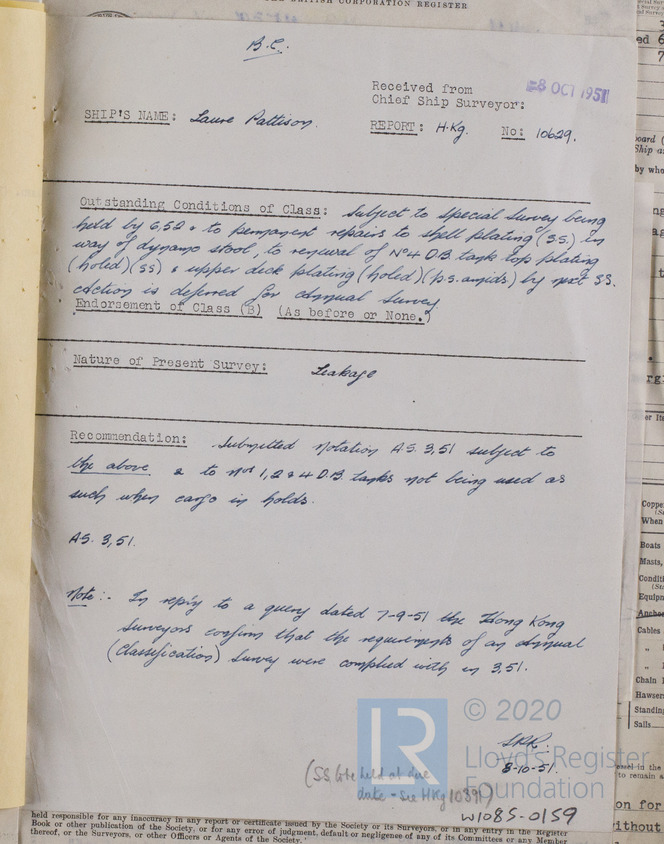 BRITISH CORPORATION REGISTER
B.C.
Received from
Chief Ship Surveyor:
8 OCT 1951
SHIP'S NAME: Laure Pattison.
REPORT: H.Kg. No: 10629.
Outstanding Conditions of Class: Subject to Special Survey being
held by 6,52 & to permanent repairs to shell plating (S.S.) in
way of dynamo stool, to renewal of No 4 D.B. tank top plating
(holed)(SS) & upper deck plating (holed)(p.s. amids) by next SS.
Action is deferred for Annual Survey.
Endorsement of Class (B) (As before or None.)
Nature of Present Survey: Leakage
Recommendation: Submitted Notation AS. 3,51 subject to
the above & to Nos 1,2 & 4 D.B. tanks not being used as
such when cargo in holds.
AS. 3,51.
Note:- In reply to a query dated 7-9-51 the Hong Kong
Surveyors confirm that the requirements of an Annual
(Classification) Survey were complied with in 3,51.
8-10-51.
(SS to be held at due
date - see HKg 10891)
W1085-0159
LR © 2020
Lloyd's Register
Foundation
held responsible for any inaccuracy in any report or certificate issued by the Society or its Surveyors, or in any entry in the Register
Book or other publication of the Society, or for any error of judgment, default or negligence of any of its Committees or any Member
thereof, or the Surveyors, or other Officers or Agents of the Society.'
by whe
Coppe
When
Boats
Masts,
Condit
Equipm
Anchor
Cables
Chain
Hawser
Standing
Sails
to remain a
on for
ithout